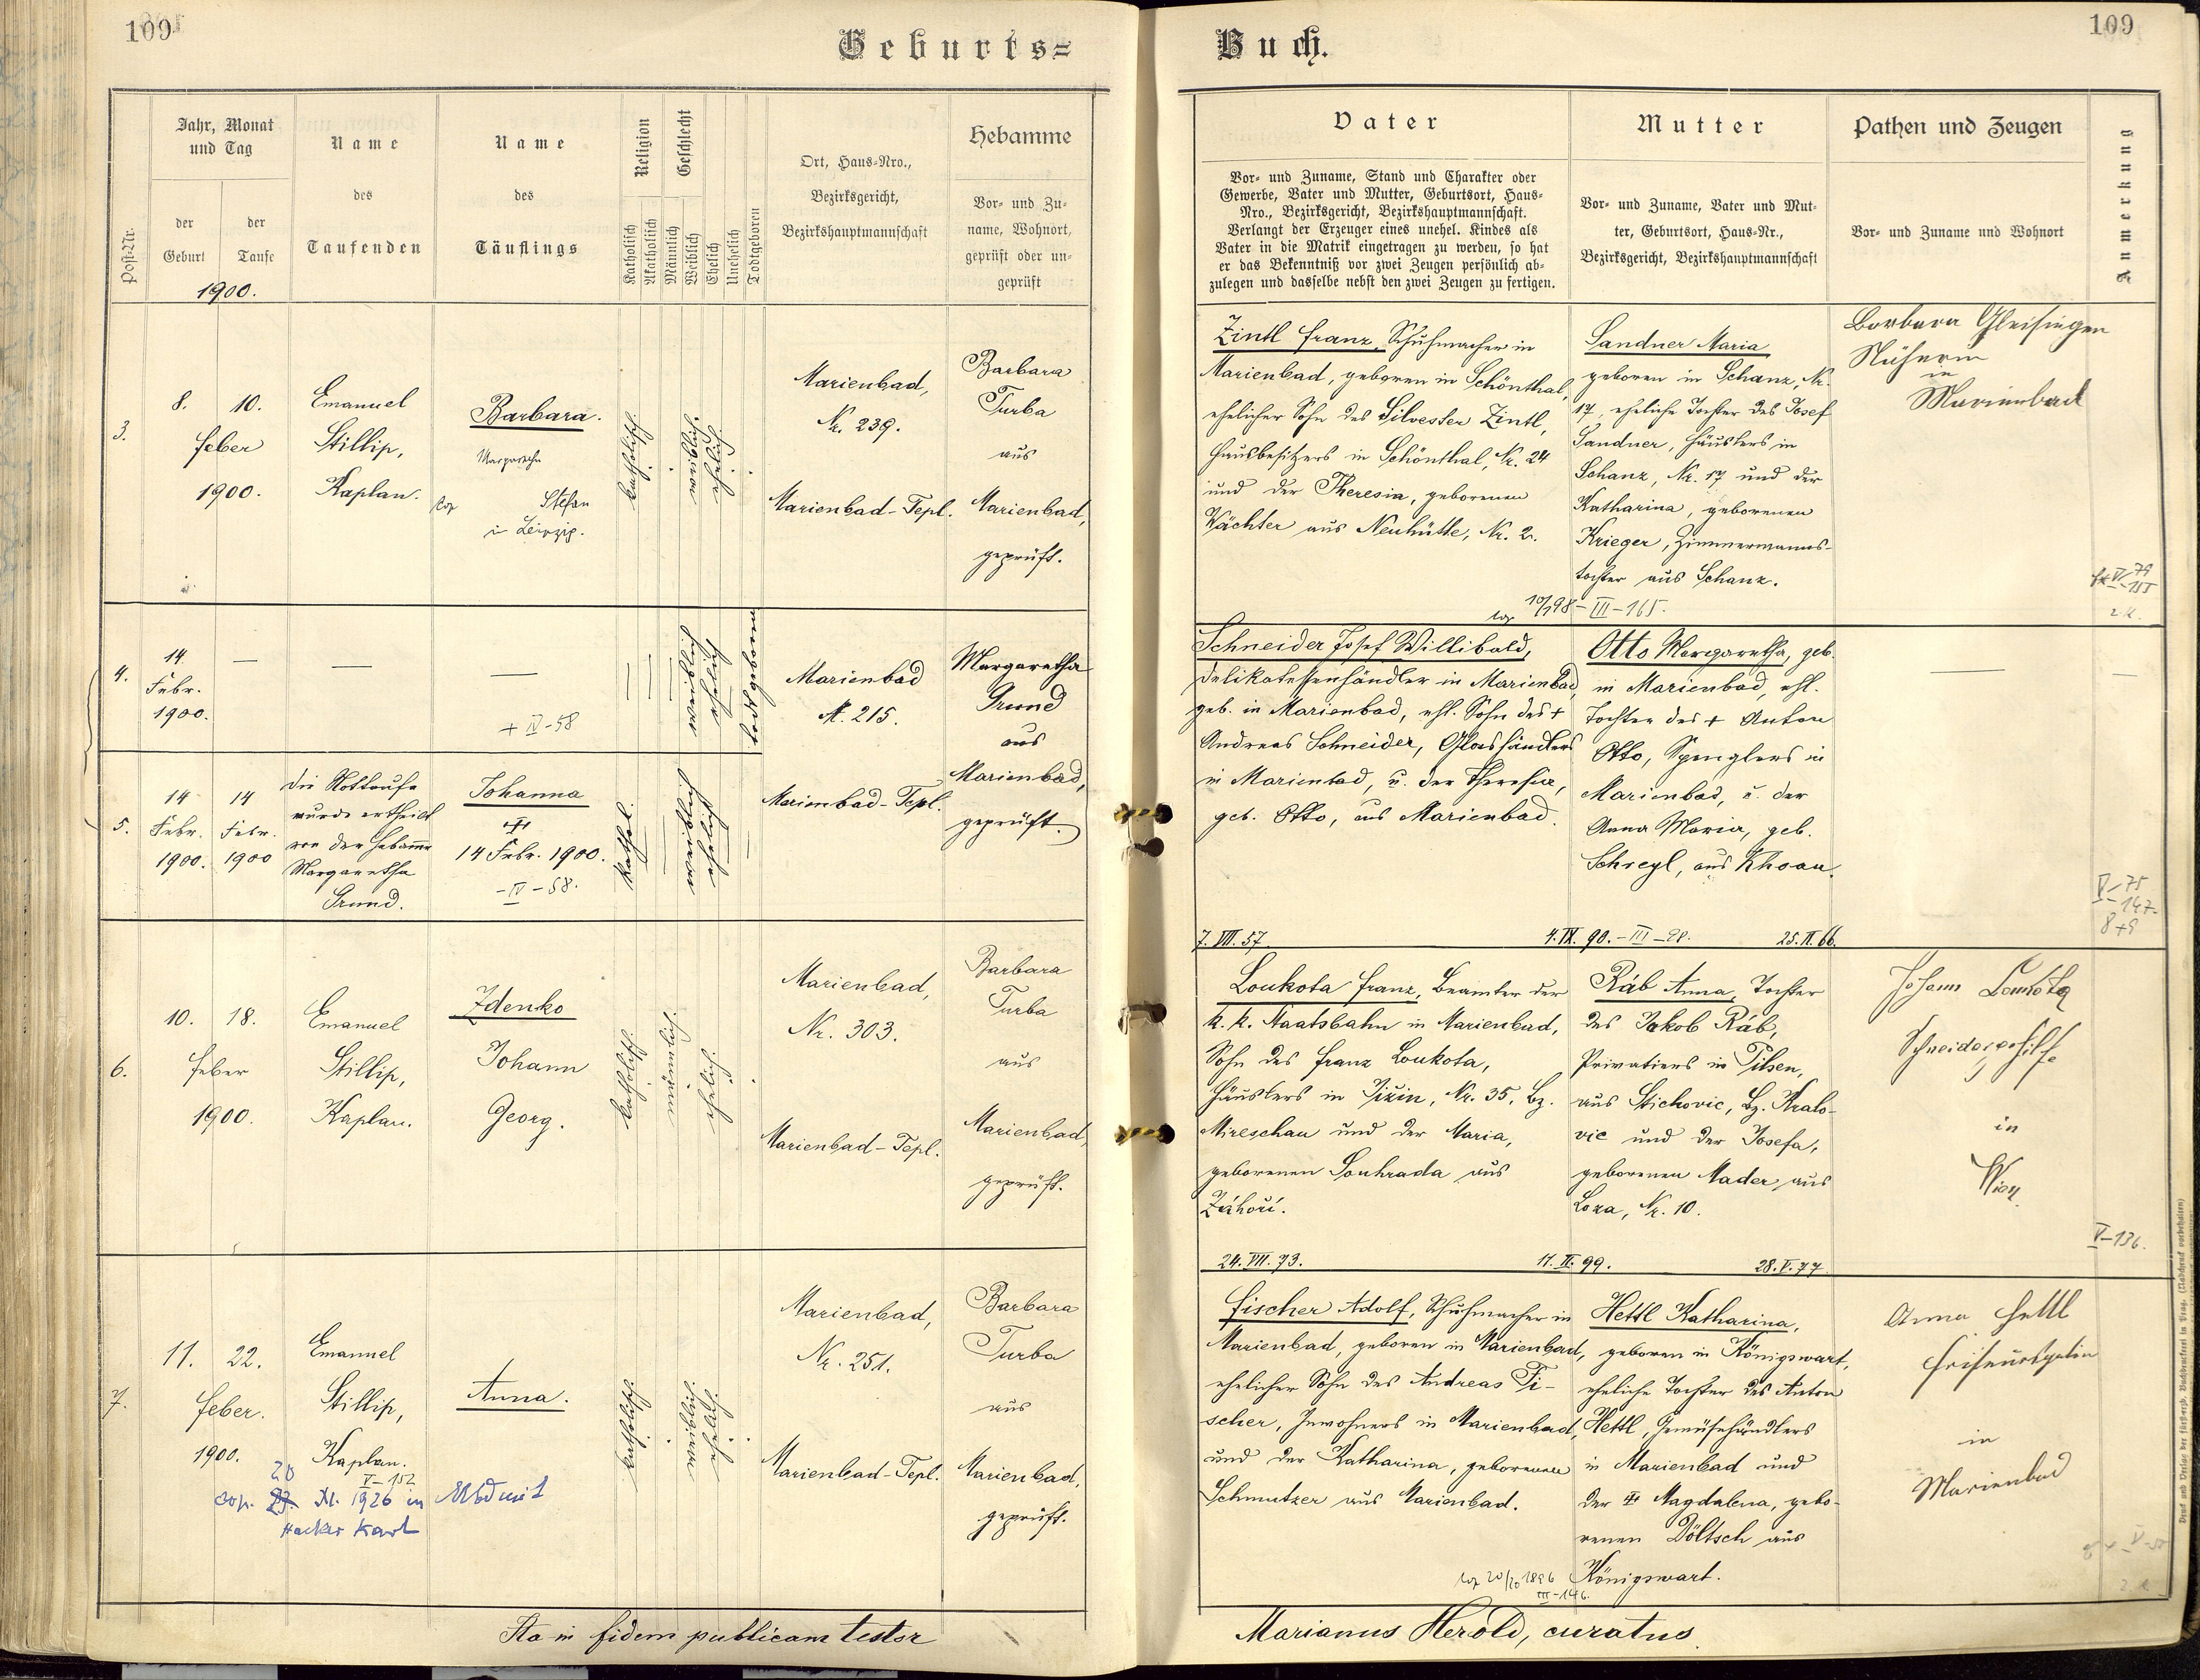 109
Geburts=
Jahr, Monat
und Tag
Post-Nr.
der
Geburt
der
Taufe
1900.
Name
des
Taufenden
Name
des
Täuflings
Religion
Katholisch
Akatholisch
Geschlecht
Männlich
Weiblich
Ehelich
Unehelich
Todtgeboren
Ort, Haus=Nro.,
Bezirksgericht,
Bezirkshauptmannschaft
Hebamme
Vor= und Zu=
name, Wohnort,
geprüft oder un=
geprüft
3.
8. 10.
Feber
1900.
Emanuel
Stillip,
Kaplan.
Barbara.
Stefan
in Leipzig.
katholisch.
weiblich.
ehelich.
Marienbad,
Nr. 239.
Marienbad-Tepl.
Barbara
Turba
aus
Marienbad,
geprüft.
4.
14.
Febr.
1900.
—
—
—
+ IV-58
weiblich
ehelich
todtgeboren
Marienbad
N. 215.
Margaretha
Grund
aus
Marienbad,
geprüft.
5.
14
Febr.
1900.
14
Febr.
1900
Die Nottaufe
wurde ertheilt
von der Hebamme
Margaretha
Grund.
Johanna
14 Febr. 1900.
-IV-58.
Kathol.
weiblich
ehelich
Marienbad-Tepl.
6.
10. 18.
Feber
1900.
Emanuel
Stillip,
Kaplan.
Zdenko
Johann
Georg.
katholisch.
männlich.
ehelich.
Marienbad,
Nr. 303.
Marienbad-Tepl.
Barbara
Turba
aus
Marienbad,
geprüft.
7.
11. 22.
Feber.
1900.
Emanuel
Stillip,
Kaplan.
V-152
Anna.
20
cop. 23. XI. 1926 in Mbd mit
Hacker Karl
katholisch.
weiblich.
ehelich.
Marienbad,
Nr. 251.
Marienbad-Tepl.
Barbara
Turba
aus
Marienbad,
geprüft.
Ita in fidem publicam testor
Buch.
109
Vater
Vor= und Zuname, Stand und Charakter oder
Gewerbe, Vater und Mutter, Geburtsort, Haus=
Nro., Bezirksgericht, Bezirkshauptmannschaft.
Verlangt der Erzeuger eines unehel. Kindes als
Vater in die Matrik eingetragen zu werden, so hat
er das Bekenntniß vor zwei Zeugen persönlich ab=
zulegen und dasselbe nebst den zwei Zeugen zu fertigen.
Mutter
Vor= und Zuname, Vater und Mut=
ter, Geburtsort, Haus=Nr.,
Bezirksgericht, Bezirkshauptmannschaft
Pathen und Zeugen
Vor= und Zuname und Wohnort
Anmerkung
Zintl Franz, Schuhmacher in
Marienbad, geboren in Schönthal,
ehelicher Sohn des Silvester Zintl,
Hausbesitzers in Schönthal, Nr. 24
und der Theresia, geborenen
Wächter aus Neuhütte, Nr. 2.
Sandner Maria
geboren in Schanz, Nr.
17, eheliche Tochter des Josef
Sandner, Häuslers in
Schanz, Nr. 17 und der
Katharina, geborenen
Krieger, Zimmermanns-
tochter aus Schanz.
Barbara Gleisinger
Näherin
in
Marienbad
cop 10/1 98 - III-165.
Schneider Josef Willibald,
Delikatessenhändler in Marienbad,
geb. in Marienbad, ehl. Sohn des +
Andreas Schneider, Glashändlers
in Marienbad, u. der Theresia,
geb. Otto, aus Marienbad.
Otto Margaretha, geb.
in Marienbad, ehl.
Tochter des + Anton
Otto, Spenglers in
Marienbad, u. der
Anna Maria, geb.
Schregl, aus Khoau.
—
—
V-75
-147.
8+9
7. VIII. 57.
4. IX. 90. - III-98.
25. II. 66.
Loukota Franz, Beamter der
k. k. Staatsbahn in Marienbad,
Sohn des Franz Loukota,
Häuslers in Žižin, Nr. 35, Bz.
Mireschau und der Maria,
geborenen Souhrada aus
Záhoří.
Ráb Anna, Tochter
des Jakob Ráb,
Privatiers in Pilsen,
aus Stichovic, Bz. Kralo-
vic und der Josefa,
geborenen Mader aus
Loza, Nr. 10.
Johann Loukota
Schneidergehilfe
in
Wien
V-136.
24. VII. 73.
11. II. 99.
28. V. 77.
Fischer Adolf, Schuhmacher in
Marienbad, geboren in Marienbad,
ehelicher Sohn des Andreas Fi-
scher, Inwohners in Marienbad,
und der Katharina, geborenen
Schmutzer aus Marienbad.
Hettl Katharina,
geboren in Königswart,
eheliche Tochter des Anton
Hettl, Gemüsehändlers
in Marienbad und
der Magdalena, gebo-
renen Döltsch aus
Königswart.
Anna Hettl
Friseursgattin
in
Marienbad
cop 20/10 1896
III-146.
Marianus Herold, curatus.